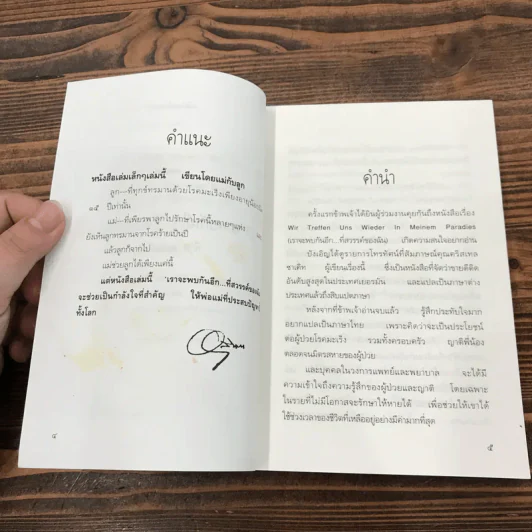 คำแนะ
หนังสือเล่มเล็กๆเล่มนี้ เขียนโดยแม่กับลูก
ลูก---ที่ทุกข์ทรมานด้วยโรคมะเร็งเพียงอายุ
๑๕ ปีเท่านั้น
แม่---ที่เพียรพาลูกไปรักษาโรคนี้หลายๆแห่ง
ยังเห็นลูกทรมานจากโรคร้ายเป็นปี
แล้วลูกก็จากไป
แม่ช่วยลูกได้เพียงแค่นี้
แต่หนังสือเล่มนี้ "เราจะพบกันอีก...ที่สวรรค์ของ
จะช่วยเป็นกำลังใจที่สำคัญ ให้พ่อแม่ที่ประสบปัญหา
ทั้งโลก
๔
คำนำ
ครั้งแรกข้าพเจ้าได้ยินผู้ร่วมงานคุยกันถึงหนังสือเรื่อง
Wir Treffen Uns Wieder In Meinem Paradies
(เราจะพบกันอีก...ที่สวรรค์ของฉัน) เกิดความสนใจอยากอ่าน
ยังเอิญได้ดูรายการโทรทัศน์ที่สัมภาษณ์คุณคริสเทล
ซาเคิท ผู้เขียนเรื่องนี้ ซึ่งเป็นหนังสือที่จัดว่าขายดีติด
อันดับสูงสุดในประเทศเยอรมัน และแปลเป็นภาษาต่าง
ประเทศแล้วถึงสิบแปดภาษา
หลังจากที่ข้าพเจ้าอ่านจบแล้ว รู้สึกประทับใจมาก
อยากแปลเป็นภาษาไทย เพราะคิดว่าจะเป็นประโยชน์
ต่อผู้ป่วยโรคมะเร็ง รวมทั้งครอบครัว ญาติพี่น้อง
ตลอดจนมิตรสหายของผู้ป่วย
และบุคคลในวงการแพทย์และพยาบาล จะได้มี
ความเข้าใจถึงความรู้สึกของผู้ป่วยและญาติ โดยเฉพาะ
ในรายที่ไม่มีโอกาสจะรักษาให้หายได้ เพื่อช่วยให้เขาได้
ใช้ช่วงเวลาของชีวิตที่เหลืออยู่อย่างมีค่ามากที่สุด
๕